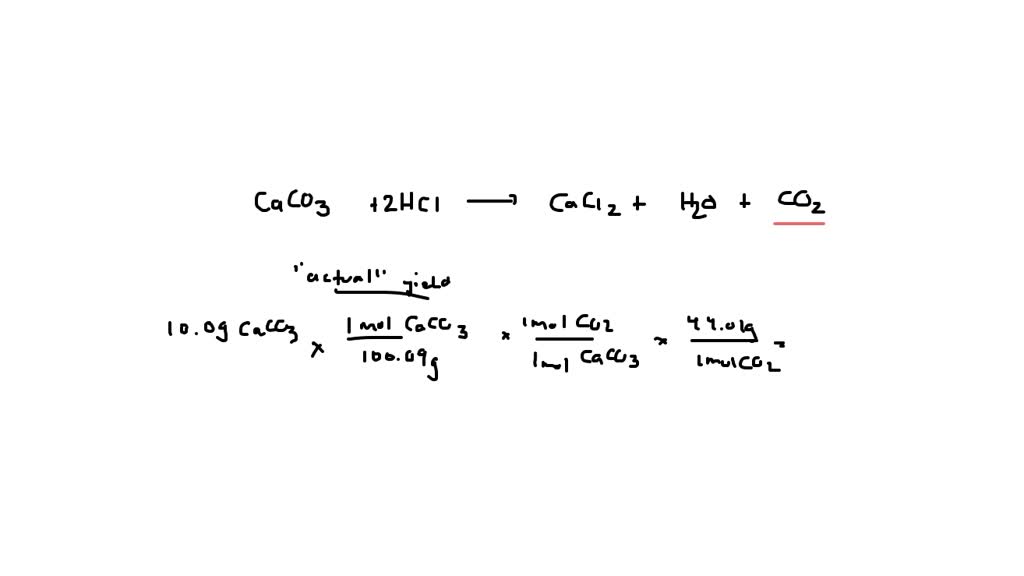 CaCO3 + 2HCl ⟶ CaCl2 + H2O + CO2
"actual" yield
10.0g CaCO3 × 1 mol CaCO3 / 100.09g × 1 mol CO2 / 1 mol CaCO3 × 44.01g / 1 mol CO2 =